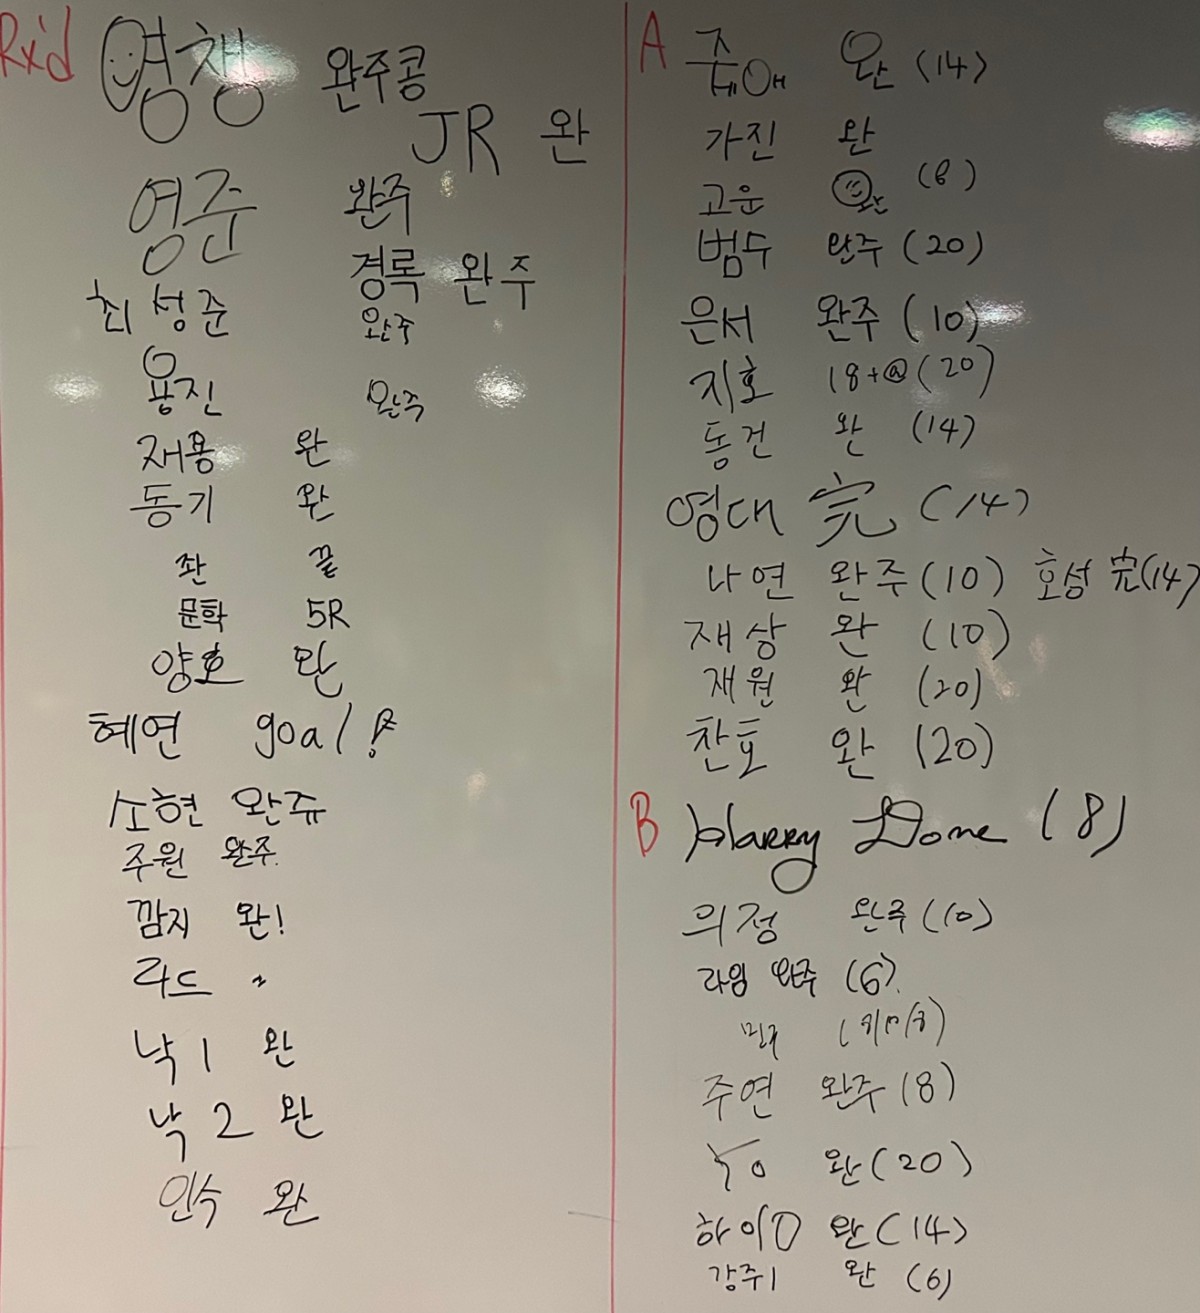 Rx'd
영챙 완주콩
JR 완
영준 완주
경록 완주
최성준 완주
용진 완주
재용 완
동기 완
좐 끝
문학 5R
양호 완
혜연 goal!
소현 완쥬
주원 완주.
깜지 완!
라드 〃
낙1 완
낙2 완
인숙 완
A
완 (14)
가진 완
고운 완 (8)
범수 완주 (20)
은서 완주 (10)
지호 18+@ (20)
동건 완 (14)
영대 完 (14)
나연 완주 (10) 호성 完(14)
재상 완 (10)
재원 완 (20)
찬호 완 (20)
B
Harry Done (8)
의정 완주 (10)
라임 완주 (6).
주연 완주 (8)
완 (20)
하이 완 (14)
강주1 완 (6)